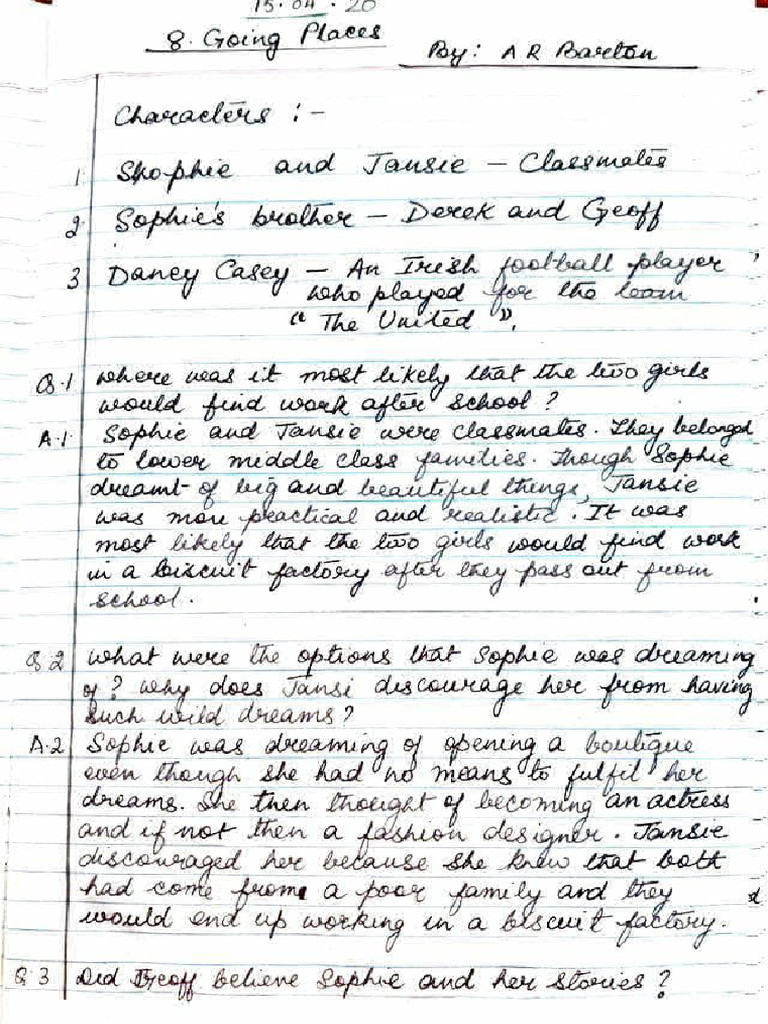 15.04.20
8. Going Places
By: A R Barton
Characters :-
1 Shophie and Jansie - Classmates
2 Sophie's brother - Derek and Geoff
3 Daney Casey - An Irish football player
who played for the team
" The United ".
Q.1 where was it most likely that the two girls
would find work after school?
A.1 Sophie and Jansie were classmates. They belonged
to lower middle class families. Though Sophie
dreamt of big and beautiful things, Jansie
was more practical and realistic. It was
most likely that the two girls would find work
in a biscuit factory after they pass out from
school.
Q 2 what were the options that Sophie was dreaming
of? why does Jansi discourage her from having
such wild dreams?
A.2 Sophie was dreaming of opening a boutique
even though she had no means to fulfil her
dreams. She then thought of becoming an actress
and if not then a fashion designer. Jansie
discouraged her because she knew that both
had come from a poor family and they
would end up working in a biscuit factory.
Q.3 Did Geoff believe Sophie and her stories?